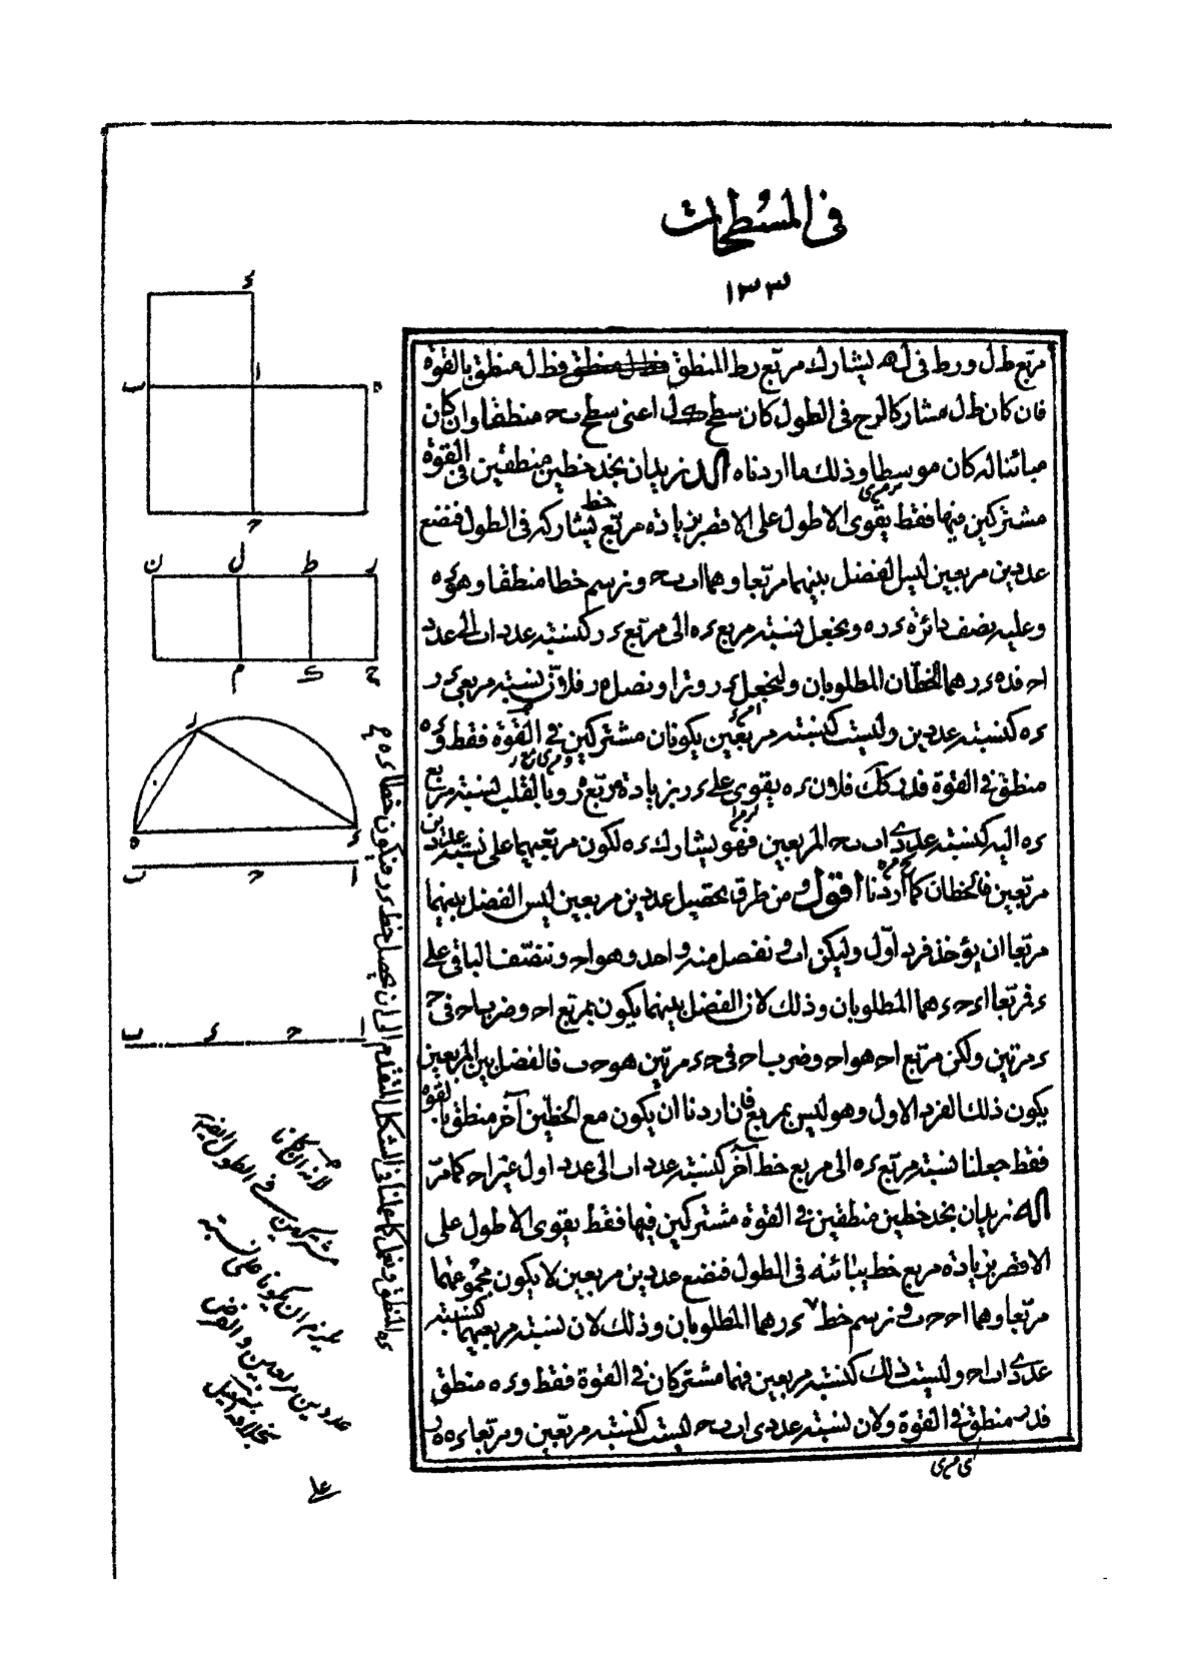 في المسطحات
١٣٣
مربع طل و رط في له يشارك مربع رط المنطق فطل منطق بالقوة
فان كان طل مشاركا لرح في الطول كان سطح كل اعنى سطح ب ح منطقا وان كان
مبائنا له كان موسطا وذلك ما اردناه نريد ان نجد خطين منطقين في القوة
مشتركين فيها فقط يقوى الاطول على الاقصر بزيادة مربع خط يشاركه في الطول فنضع
عددين مربعين ليس الفضل بينهما مربعا وهما اب ب ح ونرسم خطا منطقا وهو ء ه
وعليه نصف دائرة ء ر ه ونجعل نسبة مربع ء ه الى مربع ء ر كنسبة عدد اب الى عدد
اح فه ء ء ر هما الخطان المطلوبان ولنجعل ء ر وترا ونصل ه ر فلان نسبة مربعى ء ر
ء ه كنسبة عددين وليست كنسبة مربعين يكونان مشتركين في القوة فقط و ء ه
منطق في القوة فء ر كك فلان ء ه يقوى على ء ر بزيادة مربع ه ر وبالقلب نسبة مربع
ء ه اليه كنسبة عددى اب ب ح المربعين فهو يشارك ء ه لكون مربعيهما على نسبة عددين
مربعين فالخطان كما اردنا اقول ومن طرق تحصيل عددين مربعين ليس الفضل بينهما
مربعا ان يؤخذ فرد اول وليكن اب ونفصل منه واحد وهو اح وننصف الباقي على
ء فمربعا اء ح ء هما المطلوبان وذلك لان الفضل بينهما يكون بمربع اح وضرب اح في ح
ء مرتين ولكن مربع اح هو اح وضرب اح في ح ء مرتين هو ح ب فالفضل بين المربعين
يكون ذلك الفرد الاول وهو ليس بمربع فان اردنا ان يكون مع الخطين آخر منطق بالقوة
فقط جعلنا نسبة مربع ء ه الى مربع خط آخر كنسبة عدد اب الى عدد اول غير اح كما مر
نريد ان نجد خطين منطقين في القوة مشتركين فيها فقط يقوى الاطول على
الاقصر بزيادة مربع خط يبائنه في الطول فنضع عددين مربعين لا يكون مجموعهما
مربعا وهما اح ح ب ونرسم خط ء ر هما المطلوبان وذلك لان نسبة مربعيهما كنسبة
عددى اب اح وليست تلك كنسبة مربعين فهما مشتركان في القوة فقط و ء ه منطق
فء ر منطق في القوة ولان نسبة عددى اب ب ح ليست كنسبة مربعين ومربعا ء ه ه ر
ء
ب ا ه
ح
ن ل ط ر
م ك ح
ر
ه ء
ب ح ا
ب ء ح ا
ه المنطق ونعمل كما عملنا في الشكل المتقدم الى ان يحصل خط ء ر فيكون خطا ء ه
لانه ان كانا
مشتركين في الطول
يلزم ان يكونا على نسبة
عددين مربعين والفرض
بخلافه